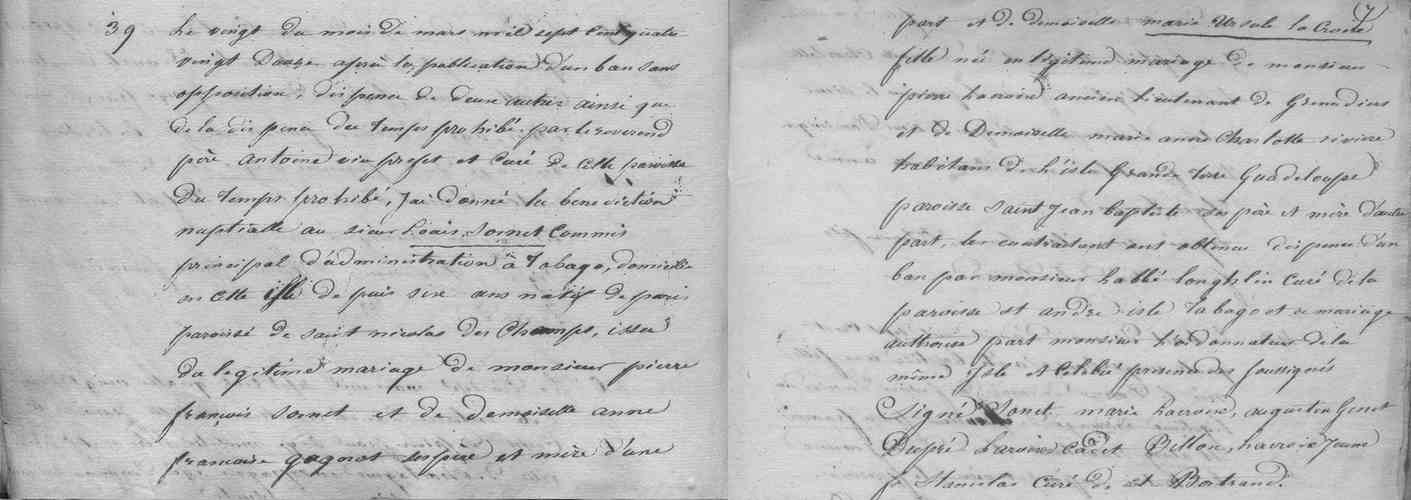 39 Le vingt du mois de mars mil sept cent quatre
vingt Douze après la publication d'un ban sans
opposition, dispense de deux autres ainsi que
de la dispense du temps prohibé par le reverend
père antoine vice prefet et Curé de Cette paroisse
Du temps prohibé, j'ai donné la benediction
nuptialle au sieur Louis Sornet Commis
principal d'administration à Tabago, domicilié
en Cette isle de puis six ans natif de paris
paroisse de saint nicolas des Champs, issu
du legitime mariage de monsieur pierre
françois Sornet et de demoiselle anne
francoise gognot ses pere et mère d'une
(7)
part et de demoiselle marie Ursule la Croix
fille né en legitime mariage de monsieur
pierre Lacroix ancien Lieutenant de Grenadiers
et de Demoiselle marie anne Charlotte riviere
habitans de L'isle Grande terre Guadeloupe
paroisse Saint Jean baptiste ses père et mère d'autre
part, les contractant ont obtenu dispense d'un
ban par monsieur Labbé Loughlin Curé de la
paroisse st andre isle Tabago et ce mariage
authorisé part monsieur L'ordonnateur de la
même Isle et Célébré presence des soussignés
Signé Sonet, marie Lacroix, augustin Genet
Dupré Cadet Billon, Lacroix Jeune
f. Stanislas Curé de st Bertrand.